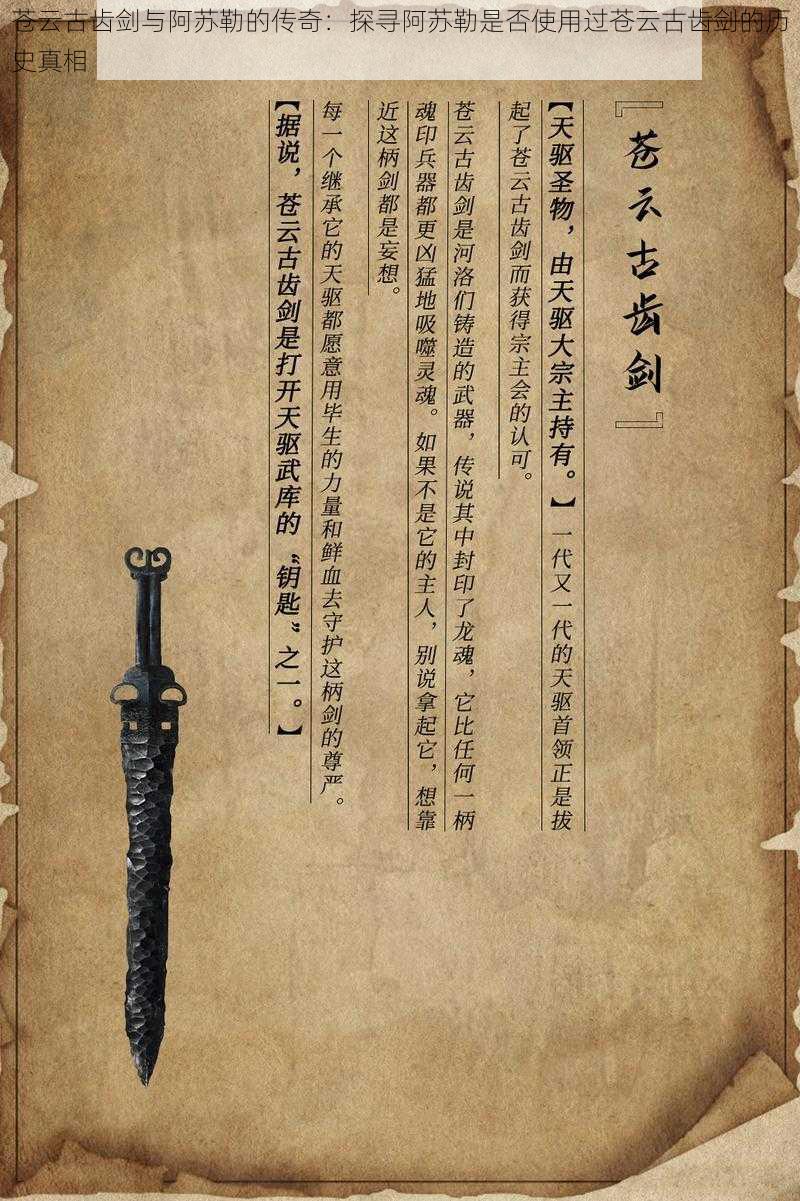 苍云古齿剑与阿苏勒的传奇：探寻阿苏勒是否使用过苍云古齿剑的历
史真相
『苍云古齿剑』
【天驱圣物，由天驱大宗主持有。】一代又一代的天驱首领正是拔
起了苍云古齿剑而获得宗主会的认可。
苍云古齿剑是河洛们铸造的武器，传说其中封印了龙魂，它比任何一柄
魂印兵器都更凶猛地吸噬灵魂。如果不是它的主人，别说拿起它，想靠
近这柄剑都是妄想。
每一个继承它的天驱都愿意用毕生的力量和鲜血去守护这柄剑的尊严。
【据说，苍云古齿剑是打开天驱武库的“钥匙”之一。】